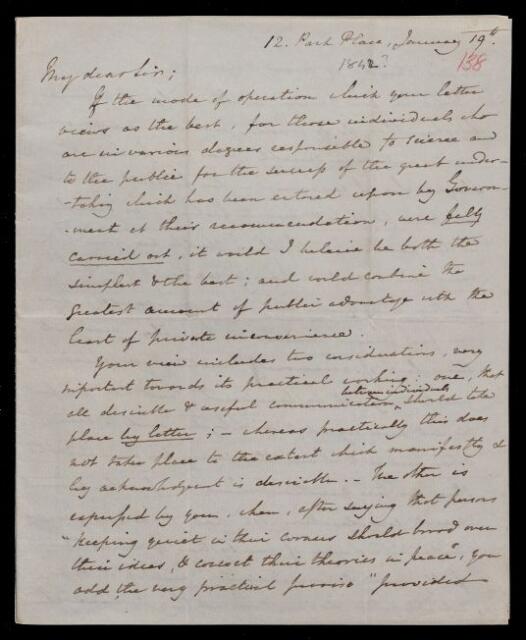 12. Park Place, January 19th.
1842?
138
My dear Sir;
If the mode of operation which your letter
views as the best, for those individuals who
are in various degrees responsible to Science and
to the public for the success of the great under-
-taking which has been entered upon by Govern-
-ment at their recommendation, were fully
carried out, it would I believe be both the
simplest & the best; and would combine the
greatest amount of public advantage with the
least of private inconvenience.
Your view includes two considerations, very
important towards its practical working: one, that
all desirable & useful communication
between individuals
should take
place by letter; - whereas practically this does
not take place to the extent which manifestly &
by acknowledgment is desirable. - The other is
expressed by you, when, after saying that persons
"keeping quiet in their corners should brood over
their ideas, & correct their theories in peace", you
add the very practical proviso "provided